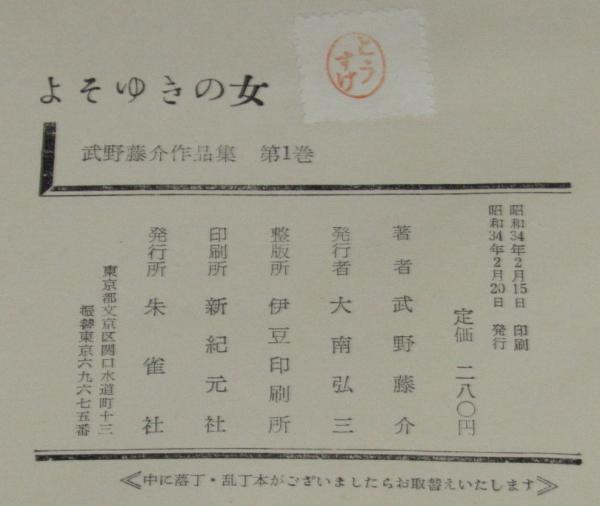 とうすけ
よそゆきの女
武野藤介作品集 第1巻
昭和34年2月15日 印刷
昭和34年2月20日 発行
定価 二八〇円
著者 武野藤介
発行者 大南弘三
整版所 伊豆印刷所
印刷所 新紀元社
発行所 朱雀社
東京都文京区関口水道町十三
振替東京六九六七五番
≪中に落丁・乱丁本がございましたらお取替えいたします≫